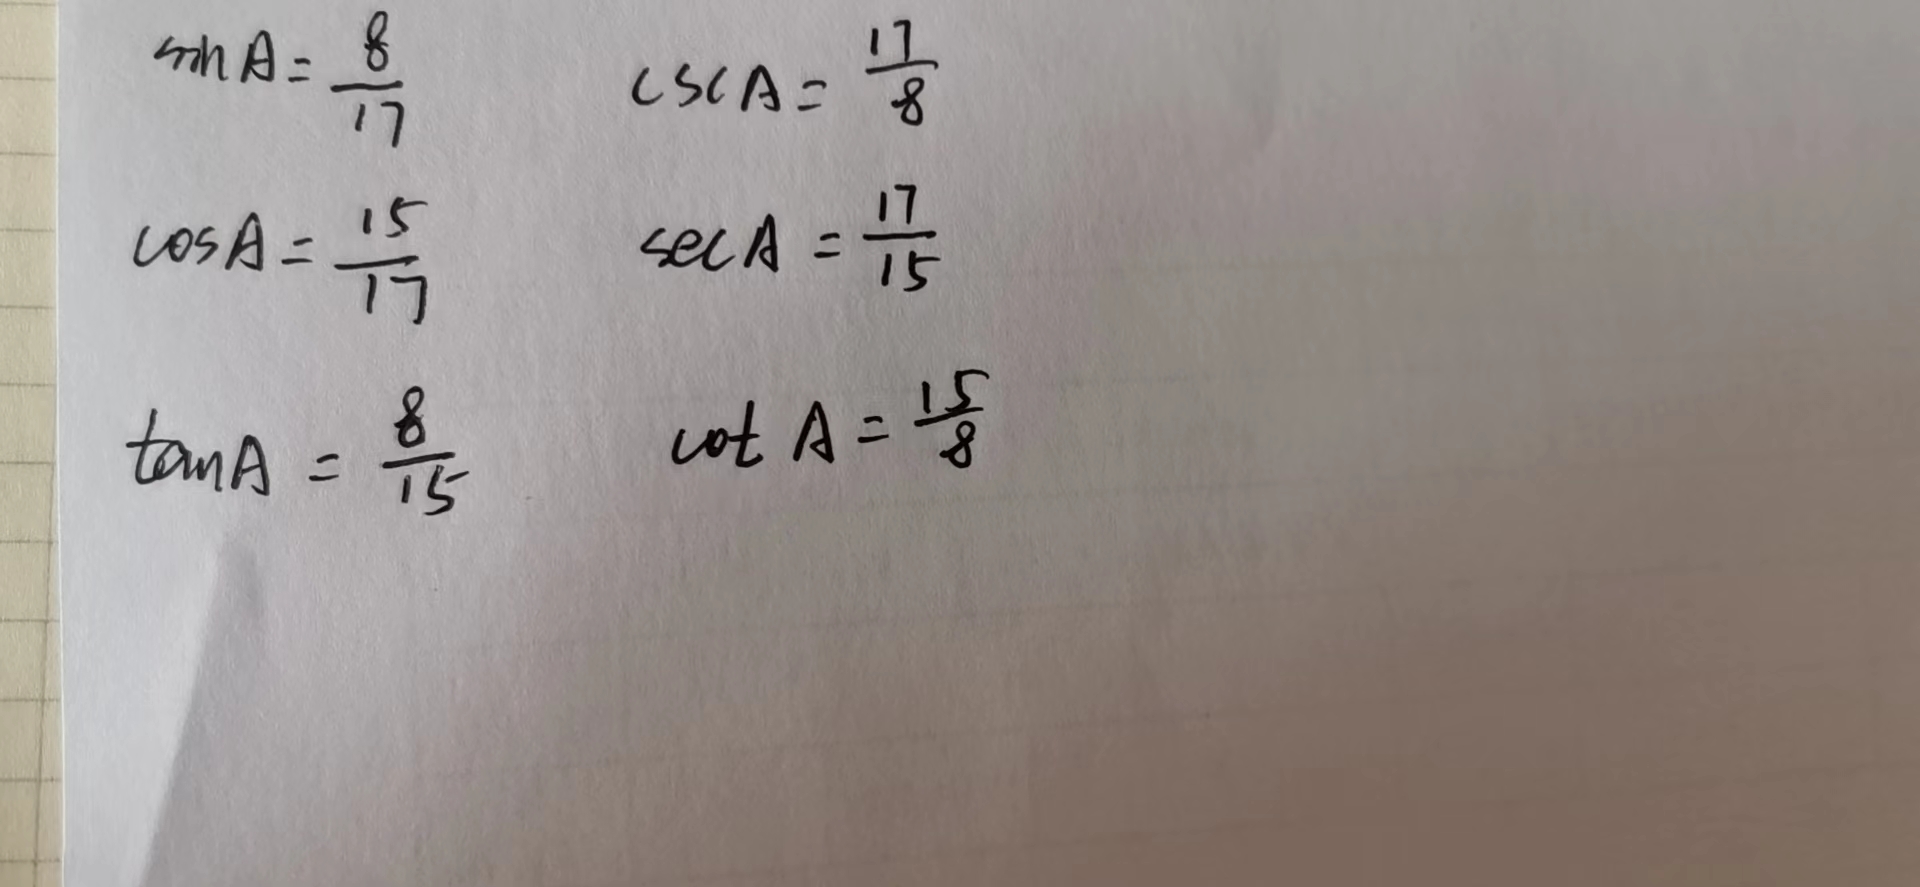 sin A = 8/17 csc A = 17/8
cos A = 15/17 sec A = 17/15
tan A = 8/15 cot A = 15/8